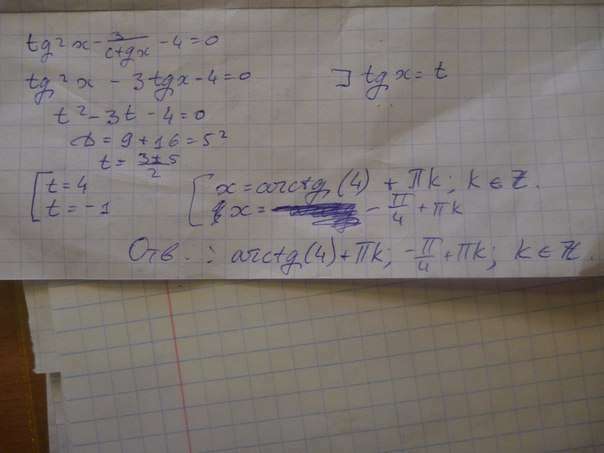 tg²x - 3/ctgx - 4 = 0
tg²x - 3tgx - 4 = 0 ∃ tgx = t
t² - 3t - 4 = 0
D = 9 + 16 = 5²
t = 3±5/2
[ t = 4
t = -1
[ x = arctg(4) + πk; k ∈ Z.
x = -π/4 + πk
Отв.: arctg(4) + πk; -π/4 + πk; k ∈ Z.